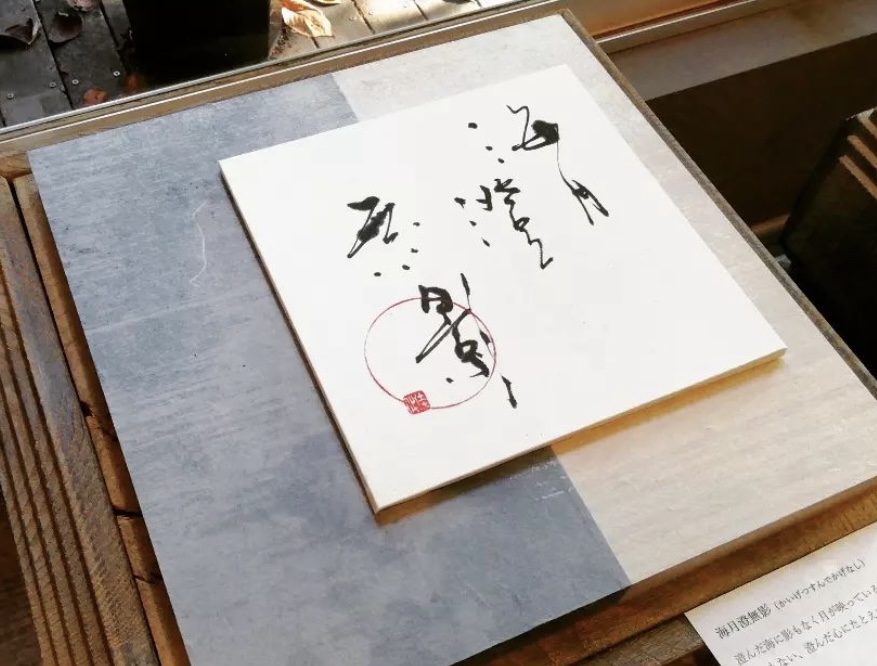 海月
澄
無影
海月澄無影 (かいげつすんでかげなし)
澄んだ海に影もなく月が映っている
ない、澄んだ心にたとえ